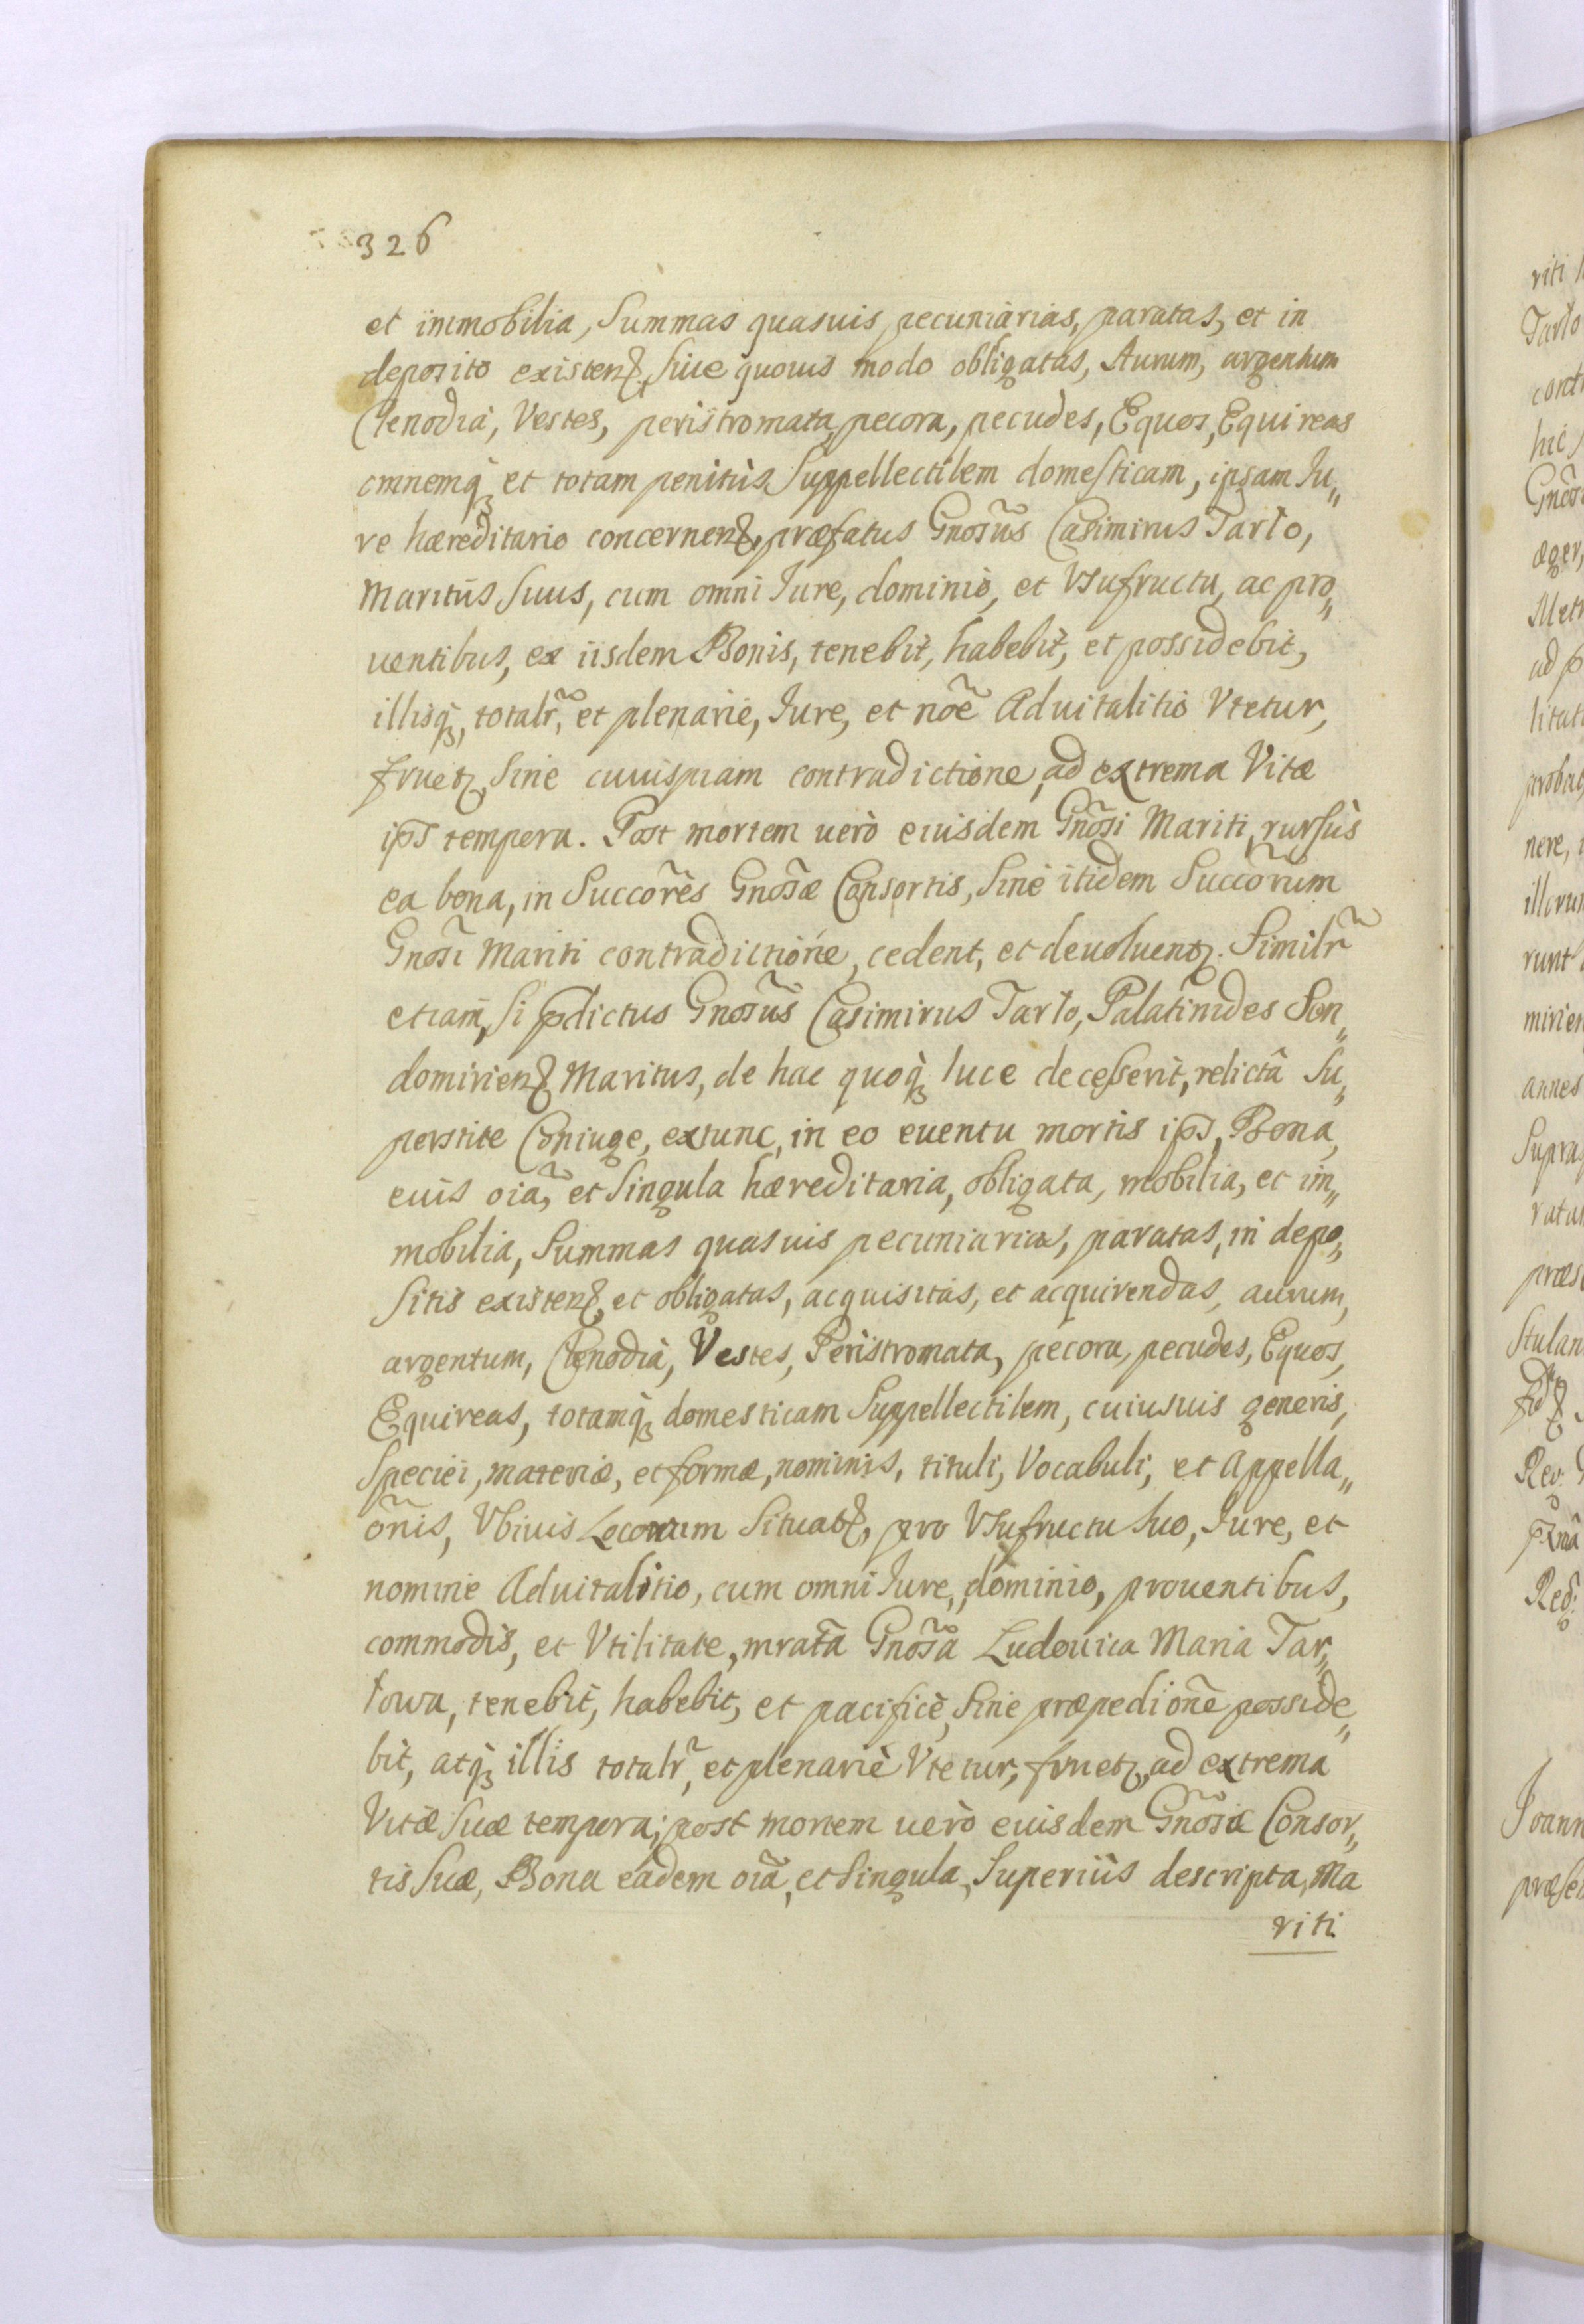 326
et immobilia, Summas quasuis pecuniarias, paratas, et in
deposito existenʒ, siue quouis modo obligatas, Aurum, argentum
Clenodia, Vestes, peristromata, pecora, pecudes, Equos, Equireas
omnemqꝫ et totam penitùs Suppellectilem domesticam, ipsam Ju„
re hæreditario concernenʒ, præfatus Gnosũs Casimirus Tarło,
Maritus suus, cum omni Jure, dominio, et Vsufructu, ac pro„
uentibus, ex iisdem Bonis, tenebit, habebit, et possidebit,
illisqꝫ, totalr̃, et plenarie, Jure, et nõe Aduitalitio Vtetur,
fruetʒ, sine cuiuspiam contradictione, ad extrema Vitæ
ips̃ tempera. Post mortem uerò eiusdem Gnõsi Mariti, rursùs
ea bona, in Succõres Gnosæ̃ Consortis, sine itidem Succõrum
Gnosĩ Mariti contradictione, cedent, et deuoluentʒ. Similr̃
etiam, si p̃dictus Gnosũs Casimirus Tarło, Palatinides San„
domirienʒ Maritus, de hac quoqꝫ luce decesserit, relictâ Su„
perstite Coniuge, extunc, in eo euentu mortis ips̃, Bona,
eius oiã, et singula hæreditaria, obligata, mobilia, et im„
mobilia, Summas quasuis pecuniarias, paratas, in depo„
sitis existenʒ, et obligatas, acquisitas, et acquirendas, aurum,
argentum, Clenodia, Vestes, Peristromata, pecora, pecudes, Equos,
Equireas, totamqꝫ domesticam Suppellectilem, cuiusuis generis,
speciei, materiæ, et formæ, nominis, tituli, Vocabuli, et Appella„
õnis, Vbiuis Locorum situatʒ, pro Vsufructu suo, Jure, et
nomine Aduitalitio, cum omni Jure, dominio, prouentibus,
commodis, et Vtilitate, mratã Gnosã Ludouica Maria Tar„
łowa, tenebit, habebit, et pacificè, sine præpediõne posside„
bit, atqꝫ illis totalr̃, et plenariè Vtetur, fruetʒ, ad extrema
Vitæ suæ tempora; post mortem uerò eiusdem Gnosæ̃ Consor„
tis suæ, Bona eadem oiã, et singula, Superiùs descripta, Ma
riti